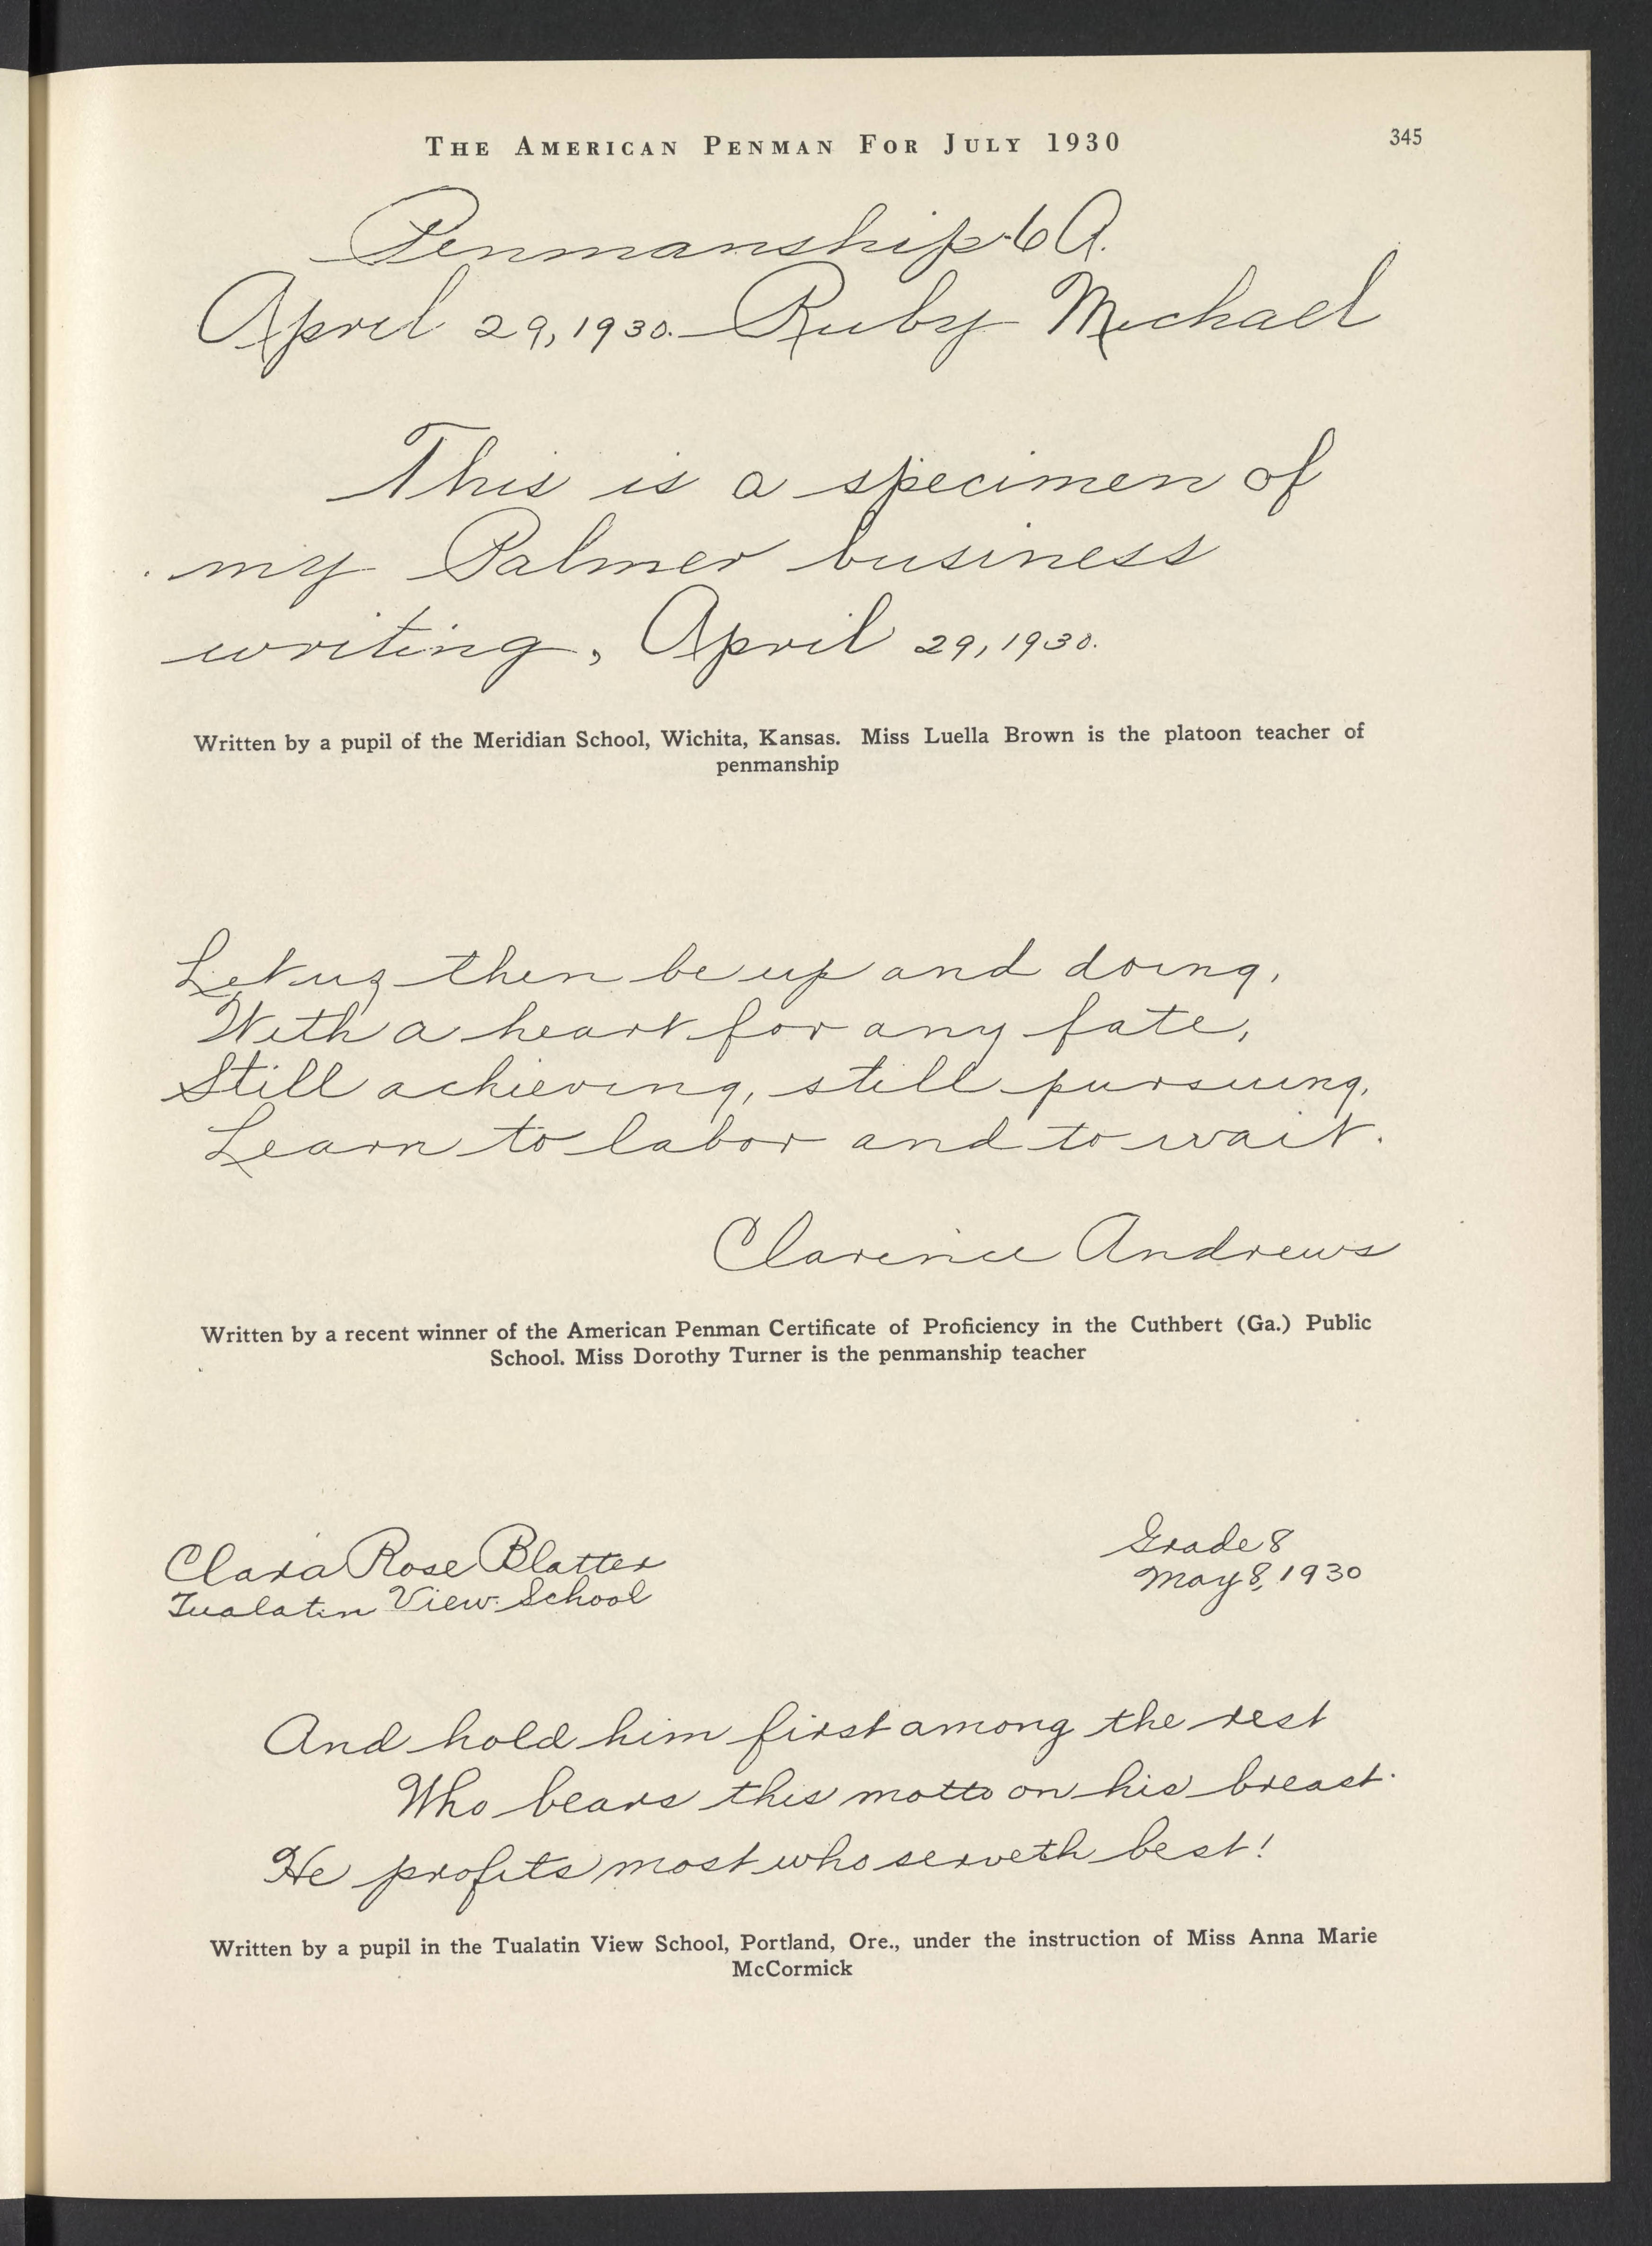 THE AMERICAN PENMAN FOR JULY 1930 345
Penmanship-6A.
April 29, 1930. Ruby Michael
This is a specimen of
my Palmer business
writing, April 29, 1930.
Written by a pupil of the Meridian School, Wichita, Kansas. Miss Luella Brown is the platoon teacher of
penmanship
Let us then be up and doing,
With a heart for any fate,
Still achieving, still pursuing,
Learn to labor and to wait.
Clarence Andrews
Written by a recent winner of the American Penman Certificate of Proficiency in the Cuthbert (Ga.) Public
School. Miss Dorothy Turner is the penmanship teacher
Clara Rose Blatter Grade 8
Tualatin View School May 8, 1930
And hold him first among the rest
Who bears this motto on his breast.
He profits most who serveth best!
Written by a pupil in the Tualatin View School, Portland, Ore., under the instruction of Miss Anna Marie
McCormick